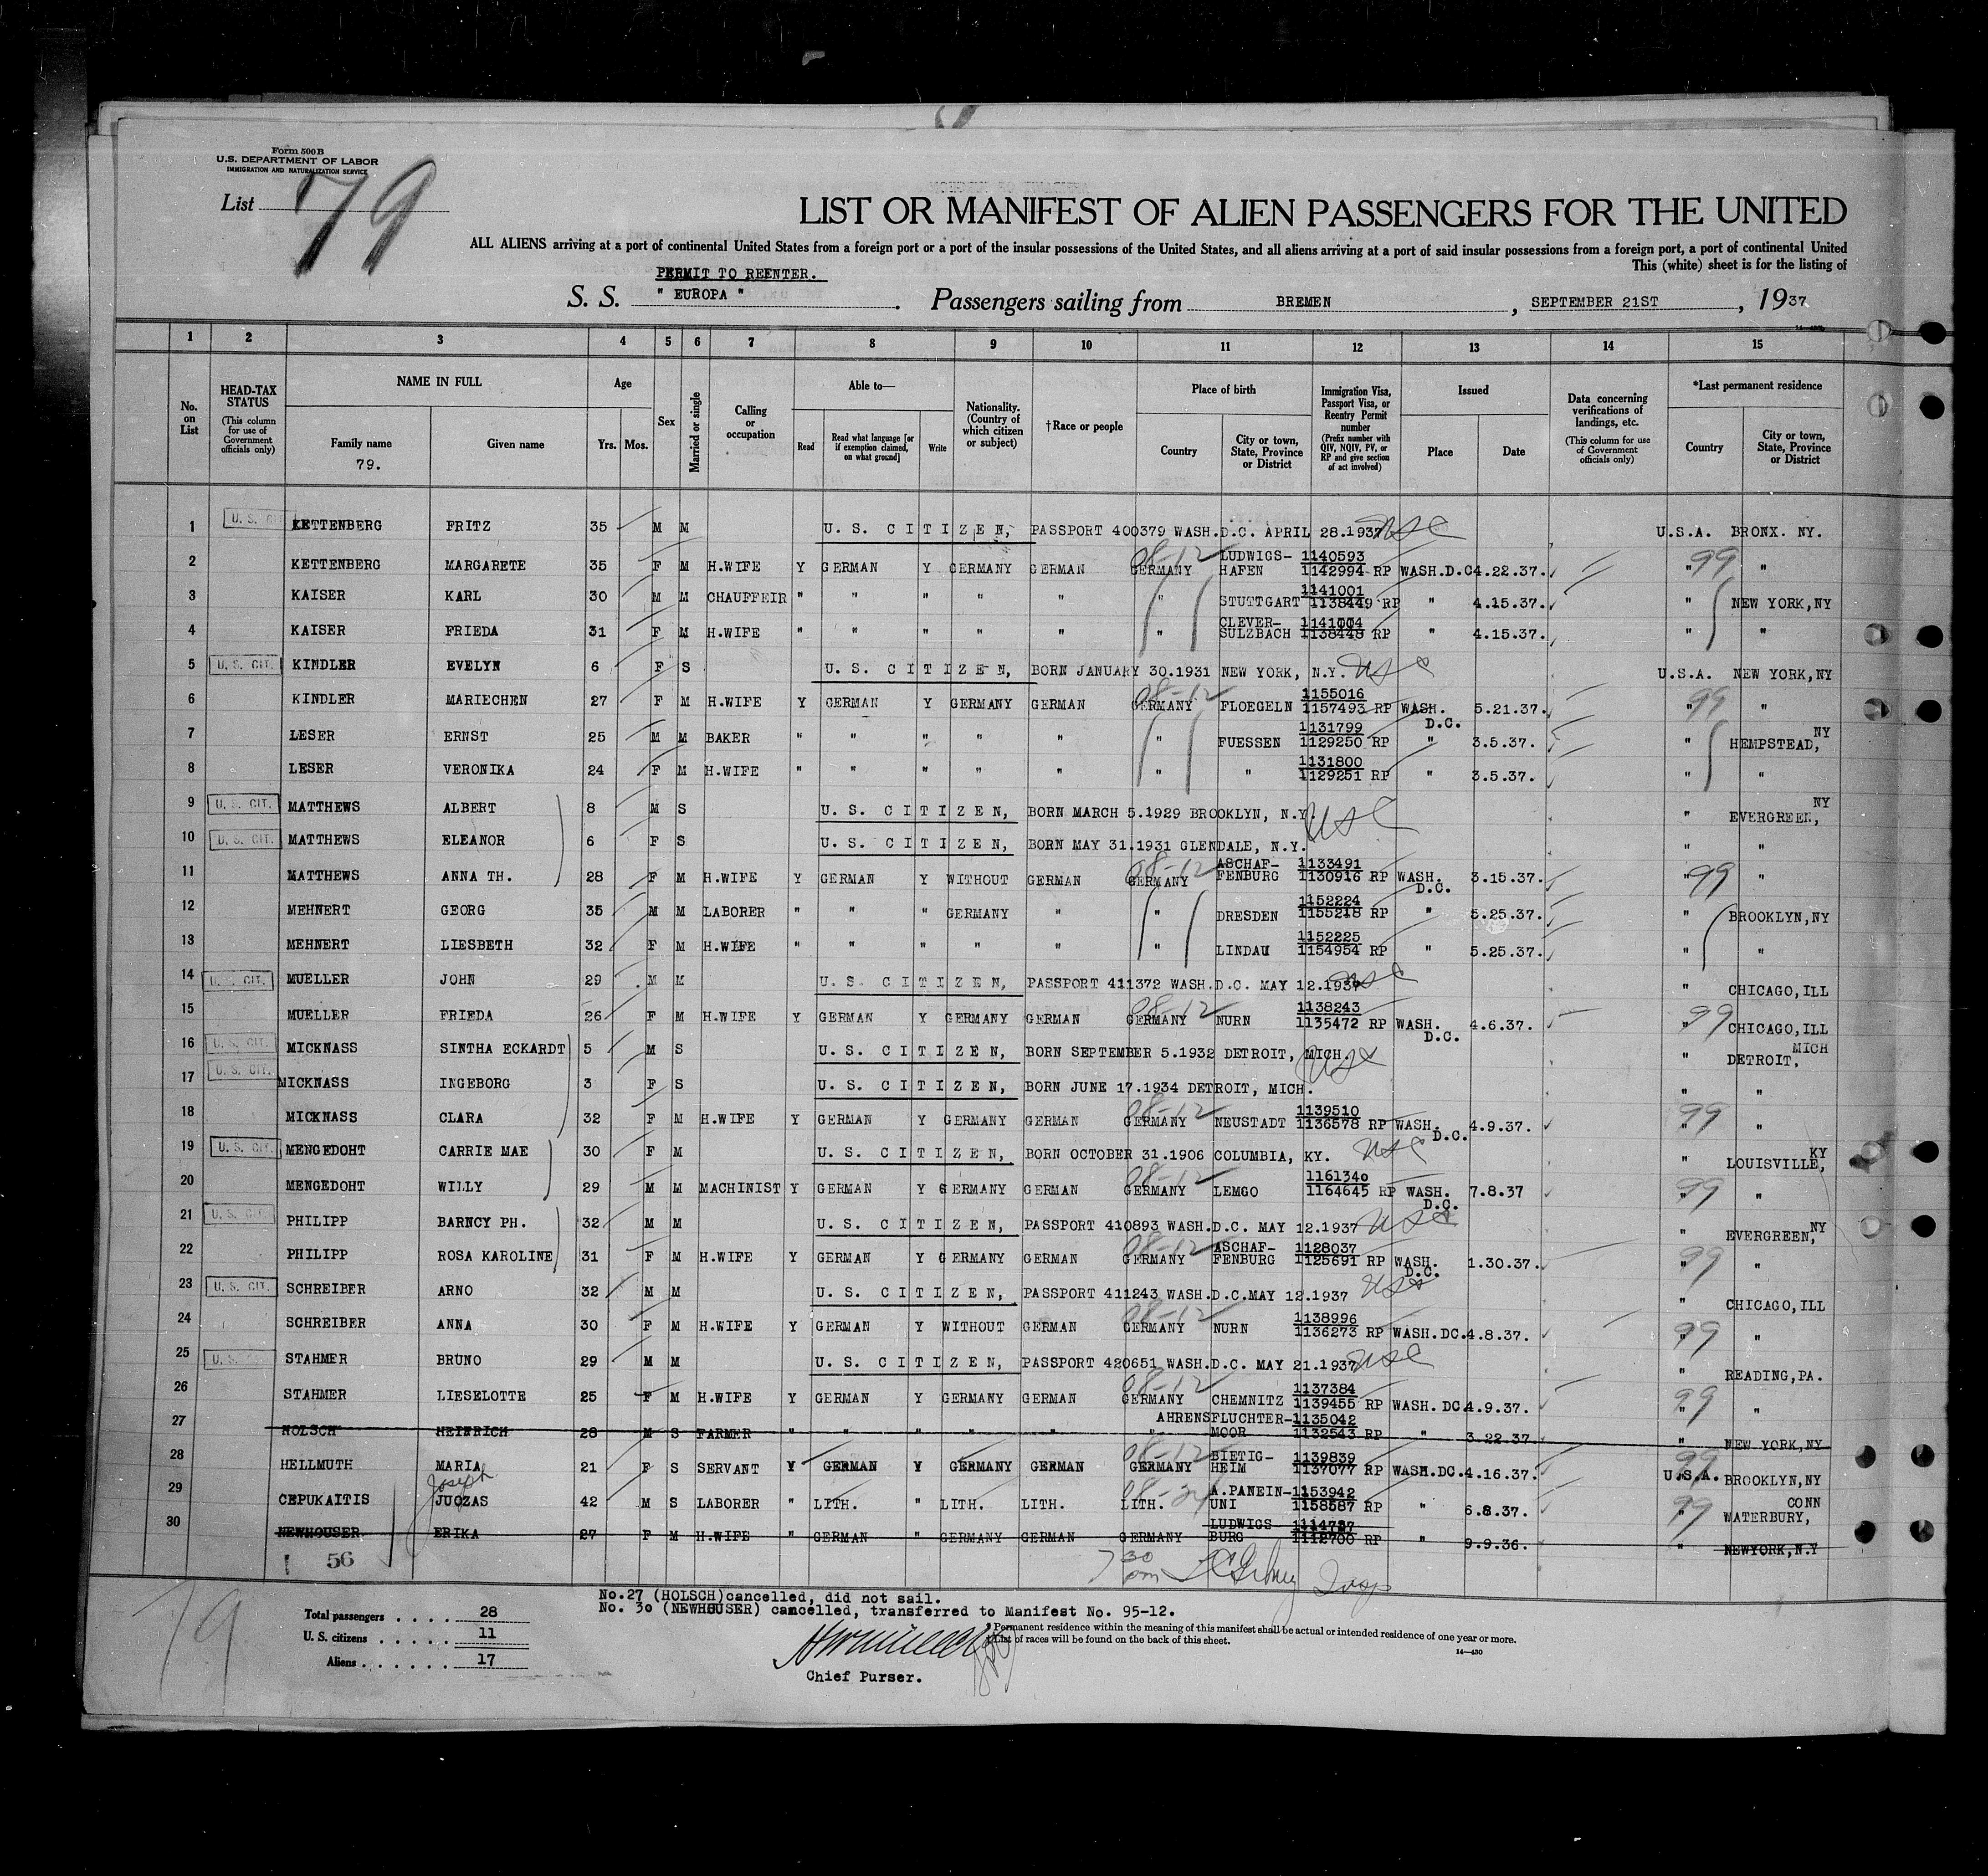 Form 500 B
U.S. DEPARTMENT OF LABOR
IMMIGRATION AND NATURALIZATION SERVICE
List 79
LIST OR MANIFEST OF ALIEN PASSENGERS FOR THE UNITED
ALL ALIENS arriving at a port of continental United States from a foreign port or a port of the insular possessions of the United States, and all aliens arriving at a port of said insular possessions from a foreign port, a port of continental United
This (white) sheet is for the listing of
PERMIT TO REENTER.
S. S. " EUROPA " . Passengers sailing from BREMEN , SEPTEMBER 21ST , 1937
1 2 3 4 5 6 7 8 9 10 11 12 13 14 15
No. on List
HEAD-TAX STATUS (This column for use of Government officials only)
NAME IN FULL
Family name 79.
Given name
Age Yrs. Mos.
Sex
Married or single
Calling or occupation
Able to— Read Read what language [or if exemption claimed, on what ground] Write
Nationality. (Country of which citizen or subject)
†Race or people
Place of birth Country City or town, State, Province or District
Immigration Visa, Passport Visa, or Reentry Permit number (Prefix number with QIV, NQIV, PV, or RP and give section of act involved)
Issued Place Date
Data concerning verifications of landings, etc. (This column for use of Government officials only)
*Last permanent residence Country City or town, State, Province or District
1 U. S. CIT KETTENBERG FRITZ 35 M M U. S. CITIZEN, PASSPORT 400379 WASH.D.C. APRIL 28.1937 USC U.S.A. BRONX. NY.
2 KETTENBERG MARGARETE 35 F M H.WIFE Y GERMAN Y GERMANY GERMAN 08-12 GERMANY LUDWIGS-HAFEN 1140593 1142994 RP WASH.D.C 4.22.37. " 99 "
3 KAISER KARL 30 M M CHAUFFEIR " " " " " " STUTTGART 1141001 1138449 RP " 4.15.37. " NEW YORK,NY
4 KAISER FRIEDA 31 F M H.WIFE " " " " " " CLEVER-SULZBACH 1141004 1138448 RP " 4.15.37. " "
5 U. S. CIT. KINDLER EVELYN 6 F S U. S. CITIZEN, BORN JANUARY 30.1931 NEW YORK, N.Y. USC U.S.A. NEW YORK,NY
6 KINDLER MARIECHEN 27 F M H.WIFE Y GERMAN Y GERMANY GERMAN 08-12 GERMANY FLOEGELN 1155016 1157493 RP WASH. D.C. 5.21.37. " 99 "
7 LESER ERNST 25 M M BAKER " " " " " " FUESSEN 1131799 1129250 RP " 3.5.37. " HEMPSTEAD, NY
8 LESER VERONIKA 24 F M H.WIFE " " " " " " " 1131800 1129251 RP " 3.5.37. " "
9 U. S. CIT. MATTHEWS ALBERT 8 M S U. S. CITIZEN, BORN MARCH 5.1929 BROOKLYN, N.Y. USC " EVERGREEN, NY
10 U. S. CIT. MATTHEWS ELEANOR 6 F S U. S. CITIZEN, BORN MAY 31.1931 GLENDALE, N.Y. " "
11 MATTHEWS ANNA TH. 28 F M H.WIFE Y GERMAN Y WITHOUT GERMAN 08-12 GERMANY ASCHAF-FENBURG 1133491 1130916 RP WASH. D.C. 3.15.37. " 99 "
12 MEHNERT GEORG 35 M M LABORER " " " GERMANY " " DRESDEN 1152224 1155218 RP " 5.25.37. " BROOKLYN,NY
13 MEHNERT LIESBETH 32 F M H.WIFE " " " " " " LINDAU 1152225 1154954 RP " 5.25.37. " "
14 U. S. CIT. MUELLER JOHN 29 M M U. S. CITIZEN, PASSPORT 411372 WASH.D.C. MAY 12.1937 USC " CHICAGO,ILL
15 MUELLER FRIEDA 26 F M H.WIFE Y GERMAN Y GERMANY GERMAN 08-12 GERMANY NURN 1138243 1135472 RP WASH. D.C. 4.6.37. " 99 CHICAGO,ILL
16 U. S. CIT. MICKNASS SINTHA ECKARDT 5 M S U. S. CITIZEN, BORN SEPTEMBER 5.1932 DETROIT, MICH. USC " DETROIT, MICH
17 U. S. CIT. MICKNASS INGEBORG 3 F S U. S. CITIZEN, BORN JUNE 17.1934 DETROIT, MICH. " "
18 MICKNASS CLARA 32 F M H.WIFE Y GERMAN Y GERMANY GERMAN 08-12 GERMANY NEUSTADT 1139510 1136578 RP WASH. D.C. 4.9.37. " 99 "
19 U. S. CIT. MENGEDOHT CARRIE MAE 30 F M U. S. CITIZEN, BORN OCTOBER 31.1906 COLUMBIA, KY. USC " LOUISVILLE, KY
20 MENGEDOHT WILLY 29 M M MACHINIST Y GERMAN Y GERMANY GERMAN 08-12 GERMANY LEMGO 1161340 1164645 RP WASH. D.C. 7.8.37 " 99 "
21 U. S. CIT. PHILIPP BARNCY PH. 32 M M U. S. CITIZEN, PASSPORT 410893 WASH.D.C. MAY 12.1937 USC " EVERGREEN, NY
22 PHILIPP ROSA KAROLINE 31 F M H.WIFE Y GERMAN Y GERMANY GERMAN 08-12 GERMANY ASCHAF-FENBURG 1128037 1125691 RP WASH. D.C. 1.30.37. " 99 "
23 U. S. CIT. SCHREIBER ARNO 32 M M U. S. CITIZEN, PASSPORT 411243 WASH.D.C.MAY 12.1937 USC " CHICAGO,ILL
24 SCHREIBER ANNA 30 F M H.WIFE Y GERMAN Y WITHOUT GERMAN 08-12 GERMANY NURN 1138996 1136273 RP WASH.DC. 4.8.37. " 99 "
25 U. S. STAHMER BRUNO 29 M M U. S. CITIZEN, PASSPORT 420651 WASH.D.C. MAY 21.1937 USC " READING,PA.
26 STAHMER LIESELOTTE 25 F M H.WIFE Y GERMAN Y GERMANY GERMAN 08-12 GERMANY CHEMNITZ 1137384 1139455 RP WASH. DC. 4.9.37. " 99 "
27 HOLSCH HEINRICH 28 M S FARMER " " " " " " AHRENSFLUCHTER-MOOR 1135042 1132543 RP " 3.22.37. " NEW YORK,NY
28 HELLMUTH MARIA 21 F S SERVANT Y GERMAN Y GERMANY GERMAN 08-12 GERMANY BIETIG-HEIM 1139839 1137077 RP WASH.DC. 4.16.37. 99 U.S.A. BROOKLYN,NY
29 CEPUKAITIS Joseph JUOZAS 42 M S LABORER " LITH. " LITH. LITH. LITH. A.PANEIN-UNI 1153942 1158587 RP " 6.8.37. 99 " WATERBURY, CONN
30 NEWHOUSER ERIKA 27 F M H.WIFE " GERMAN " GERMANY GERMAN GERMANY LUDWIGS-BURG 1112700 RP " 9.9.36. " NEWYORK,N.Y
56
7 30 pm
79
No.27 (HOLSCH)cancelled, did not sail.
No. 30 (NEWHOUSER) cancelled, transferred to Manifest No. 95-12.
Total passengers . . . . 28
U. S. citizens . . . . . 11
Aliens . . . . . . 17
Chief Purser.
* Permanent residence within the meaning of this manifest shall be actual or intended residence of one year or more.
† List of races will be found on the back of this sheet.
14—430